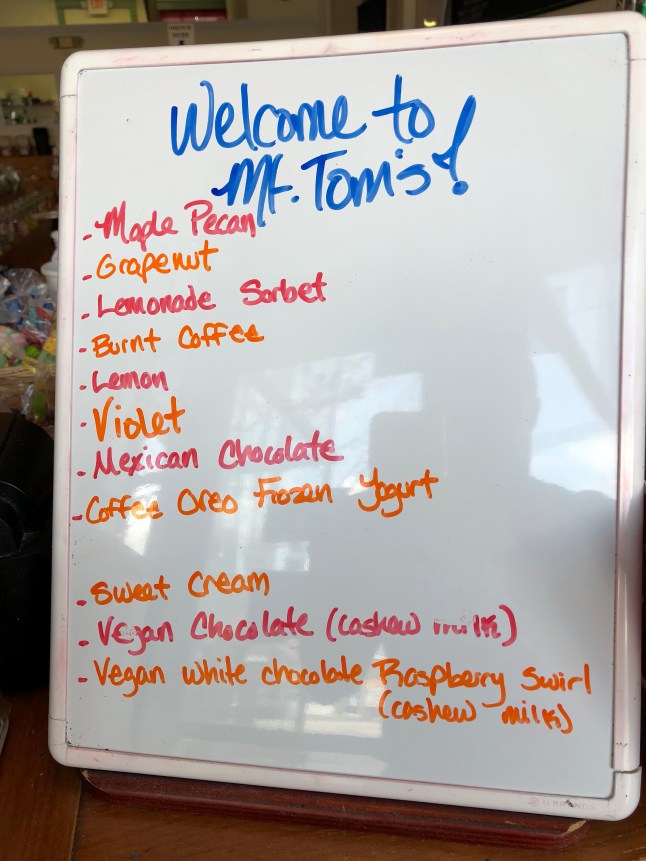 Welcome to
Mt. Tom's!
- Maple Pecan
- Grapenut
- Lemonade Sorbet
- Burnt Coffee
- Lemon
- Violet
- Mexican Chocolate
- Coffee Oreo Frozen Yogurt
- Sweet Cream
- Vegan Chocolate (cashew milk)
- Vegan white chocolate Raspberry Swirl
(cashew milk)